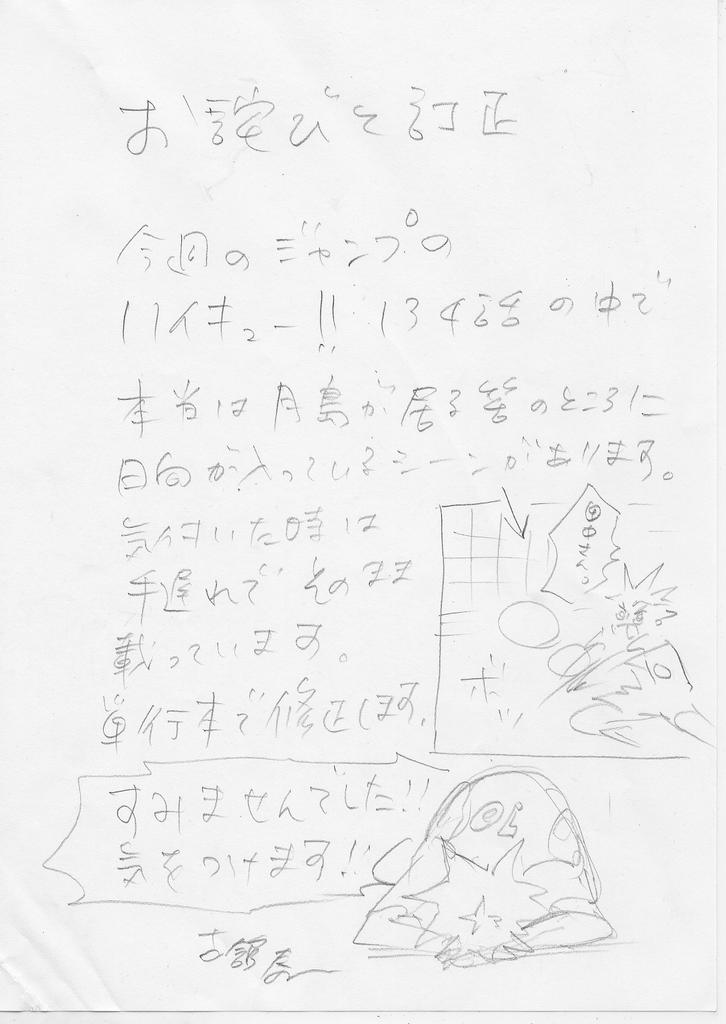 お詫びと訂正
今週のジャンプの
ハイキュー!! 134話の中で
本当は月島が居る筈のところに
日向が入っているシーンがあります。
気付いた時は
手遅れでそのまま
載っています。
単行本で修正します。
ボッ
すみませんでした!!
気をつけます!!
古舘春一